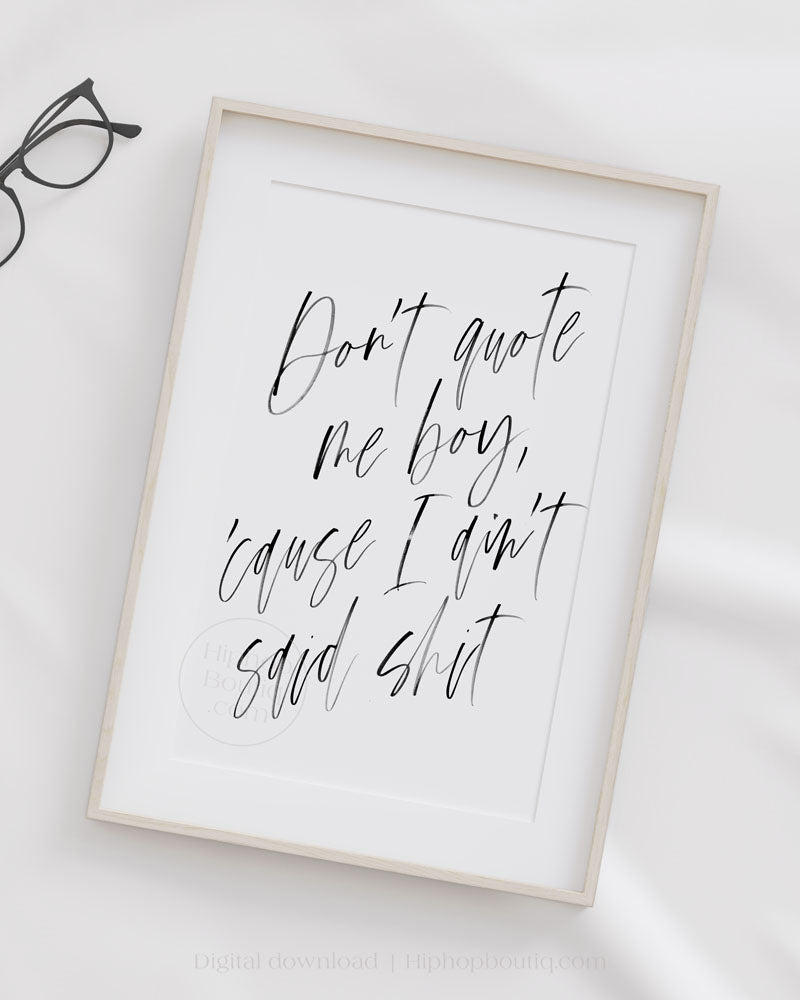 Don't quote
me boy,
'cause I ain't
said shit
Hiphop
Boutiq
.com
Digital download | Hiphopboutiq.com